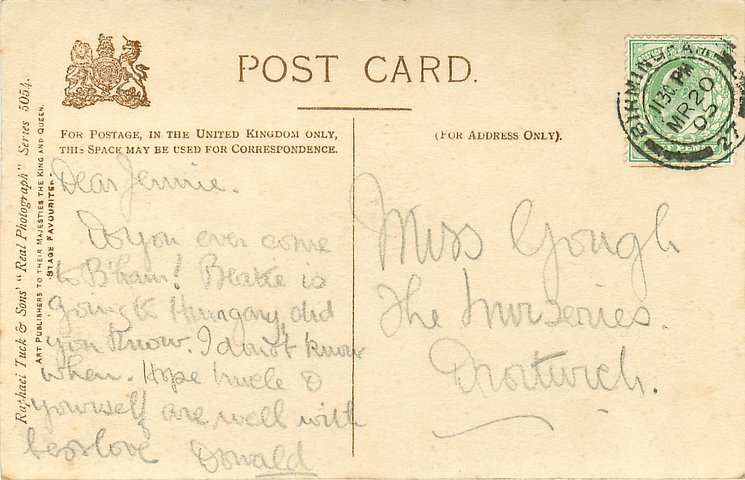 POST CARD.
FOR POSTAGE, IN THE UNITED KINGDOM ONLY,
THIS SPACE MAY BE USED FOR CORRESPONDENCE.
(FOR ADDRESS ONLY).
Raphael Tuck & Sons' "Real Photograph" Series 5054.
ART PUBLISHERS TO THEIR MAJESTIES THE KING AND QUEEN.
STAGE FAVOURITES
BIRMINGHAM
11 30 PM
MR 20
05
27
Dear Jennie.
Do you ever come
to B'ham! Beatie is
going to Hungary, did
you know. I don't know
when. Hope Uncle &
yourself are well with
best love Donald
Miss Gough
The Nurseries.
Droitwich.